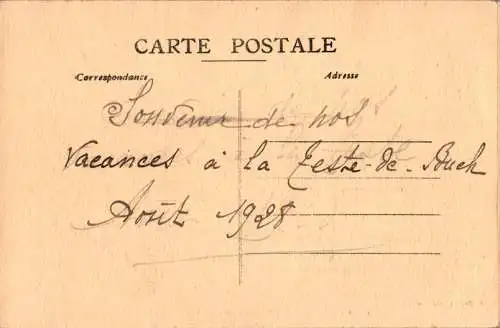 CARTE POSTALE
Correspondance Adresse
Souvenir de nos
Vacances à la Teste-de-Buch
Août 1928